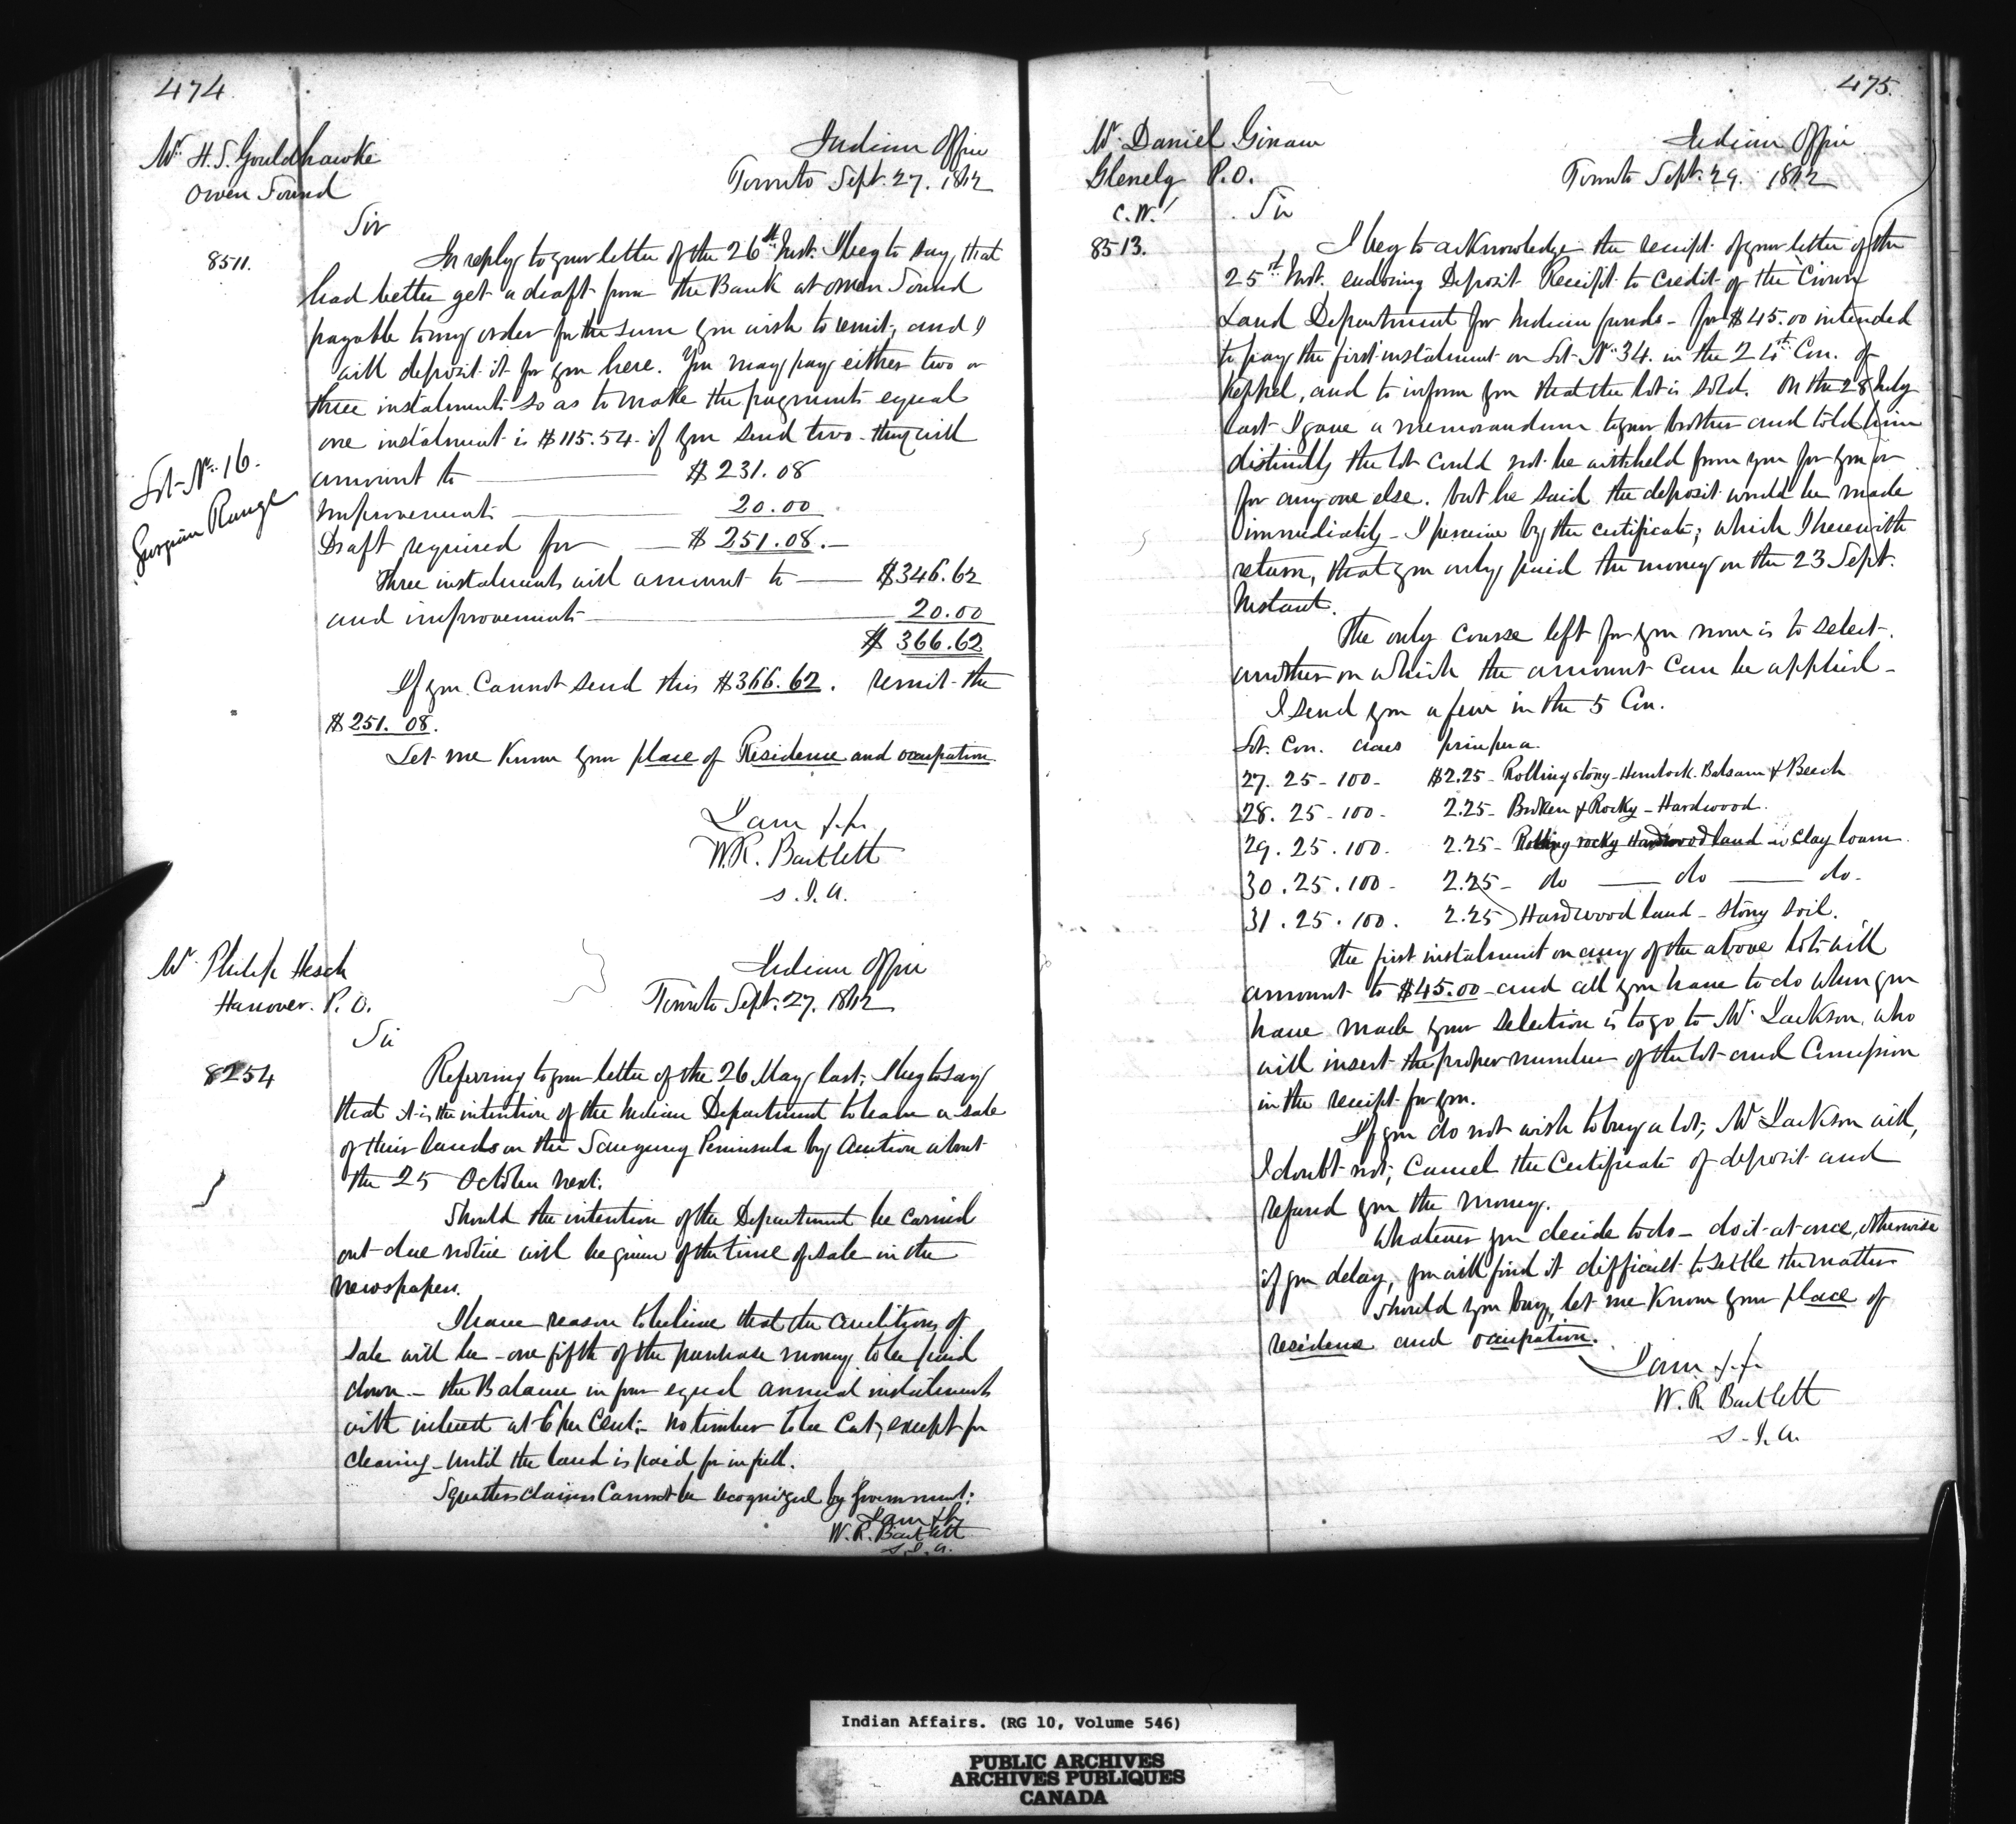 474.
Mr. H. S. Gouldhawke
Owen Sound
Indian Office
Toronto Sept. 27. 1862
Sir
8511.
In reply to your letter of the 26th Inst. I beg to say, that
had better get a draft from the Bank at Owen Sound
payable to my order for the sum you wish to remit, and I
will deposit it for you here. You may pay either two or
three instalments so as to make the payments equal
one instalment is $115.54 - if you send two - they will
amount to $231.08
Improvements 20.00
Draft required for $251.08.-
Lot No. 16.
Range
Three instalments will amount to $346.62
and improvements 20.00
$366.62
If you cannot send this $366.62. remit the
$251.08.
Let me know your place of Residence and occupation.
I am &c.
W.R. Bartlett
S.I.A.
Mr. Philip Hesch
Hanover. P.O.
Indian Office
Toronto Sept. 27. 1862
Sir
8254
Referring to your letter of the 26 May last, I beg to say
that it is the intention of the Indian Department to have a sale
of their lands on the Saugeeng Peninsula by Auction about
the 25 October next.
Should the intention of the Department be carried
out due notice will be given of the time of sale in the
newspapers.
I have reason to believe that the conditions of
sale will be - one fifth of the purchase money to be paid
down - the Balance in four equal annual instalments
with interest at 6 per Cent; - no timber to be Cut, except for
clearing - until the land is paid for in full.
Squatters claims Cannot be recognized by Government.
I am &c.
W. R. Bartlett
S.I.A.
475.
Mr. Daniel Ginaw
Glenelg P.O.
C.W.
Indian Office
Toronto Sept. 29. 1862
Sir
8513.
I beg to acknowledge the receipt of your letter of the
25th Inst. enclosing Deposit Receipt to Credit of the Crown
Land Department for Indian funds - for $45.00 intended
to pay the first instalment on Lot No. 34. in the 24th Con. of
Keppel, and to inform you that the lot is sold. On the 28 July
last I gave a memorandum to your brother and told him
distinctly the lot could not be withheld from you for you or
for any one else. but he said the deposit would be made
immediately - I perceive by the certificate, which I herewith
return, that you only paid the money on the 23 Sept.
Instant.
The only course left for you now is to select
another on which the amount Can be applied -
I send you a few in the 5 Con.
Lot. Con. acres price per a.
27. 25 - 100 - $2.25 - Rolling stony - Hemlock. Balsam & Beech
28. 25 - 100 - 2.25 - Broken & Rocky - Hardwood.
29. 25. 100. 2.25 - Rolling rocky Hardwood land in Clay loam
30. 25. 100 - 2.25 - do do do -
31. 25. 100. 2.25 Hardwood land - stony soil.
The first instalment on any of the above lots will
amount to $45.00 - and all you have to do when you
have made your selection is to go to Mr. Jackson, who
will insert the proper number of the lot and Concession
in the receipt for you.
If you do not wish to buy a lot, Mr. Jackson will,
I doubt not, Cancel the Certificate of deposit and
refund you the money.
Whatever you decide to do - do it at once, otherwise
if you delay, you will find it difficult to settle the matter
Should you buy, let me know your place of
residence and occupation.
I am &c.
W. R. Bartlett
S.I.A.
Indian Affairs. (RG 10, Volume 546)
PUBLIC ARCHIVES
ARCHIVES PUBLIQUES
CANADA